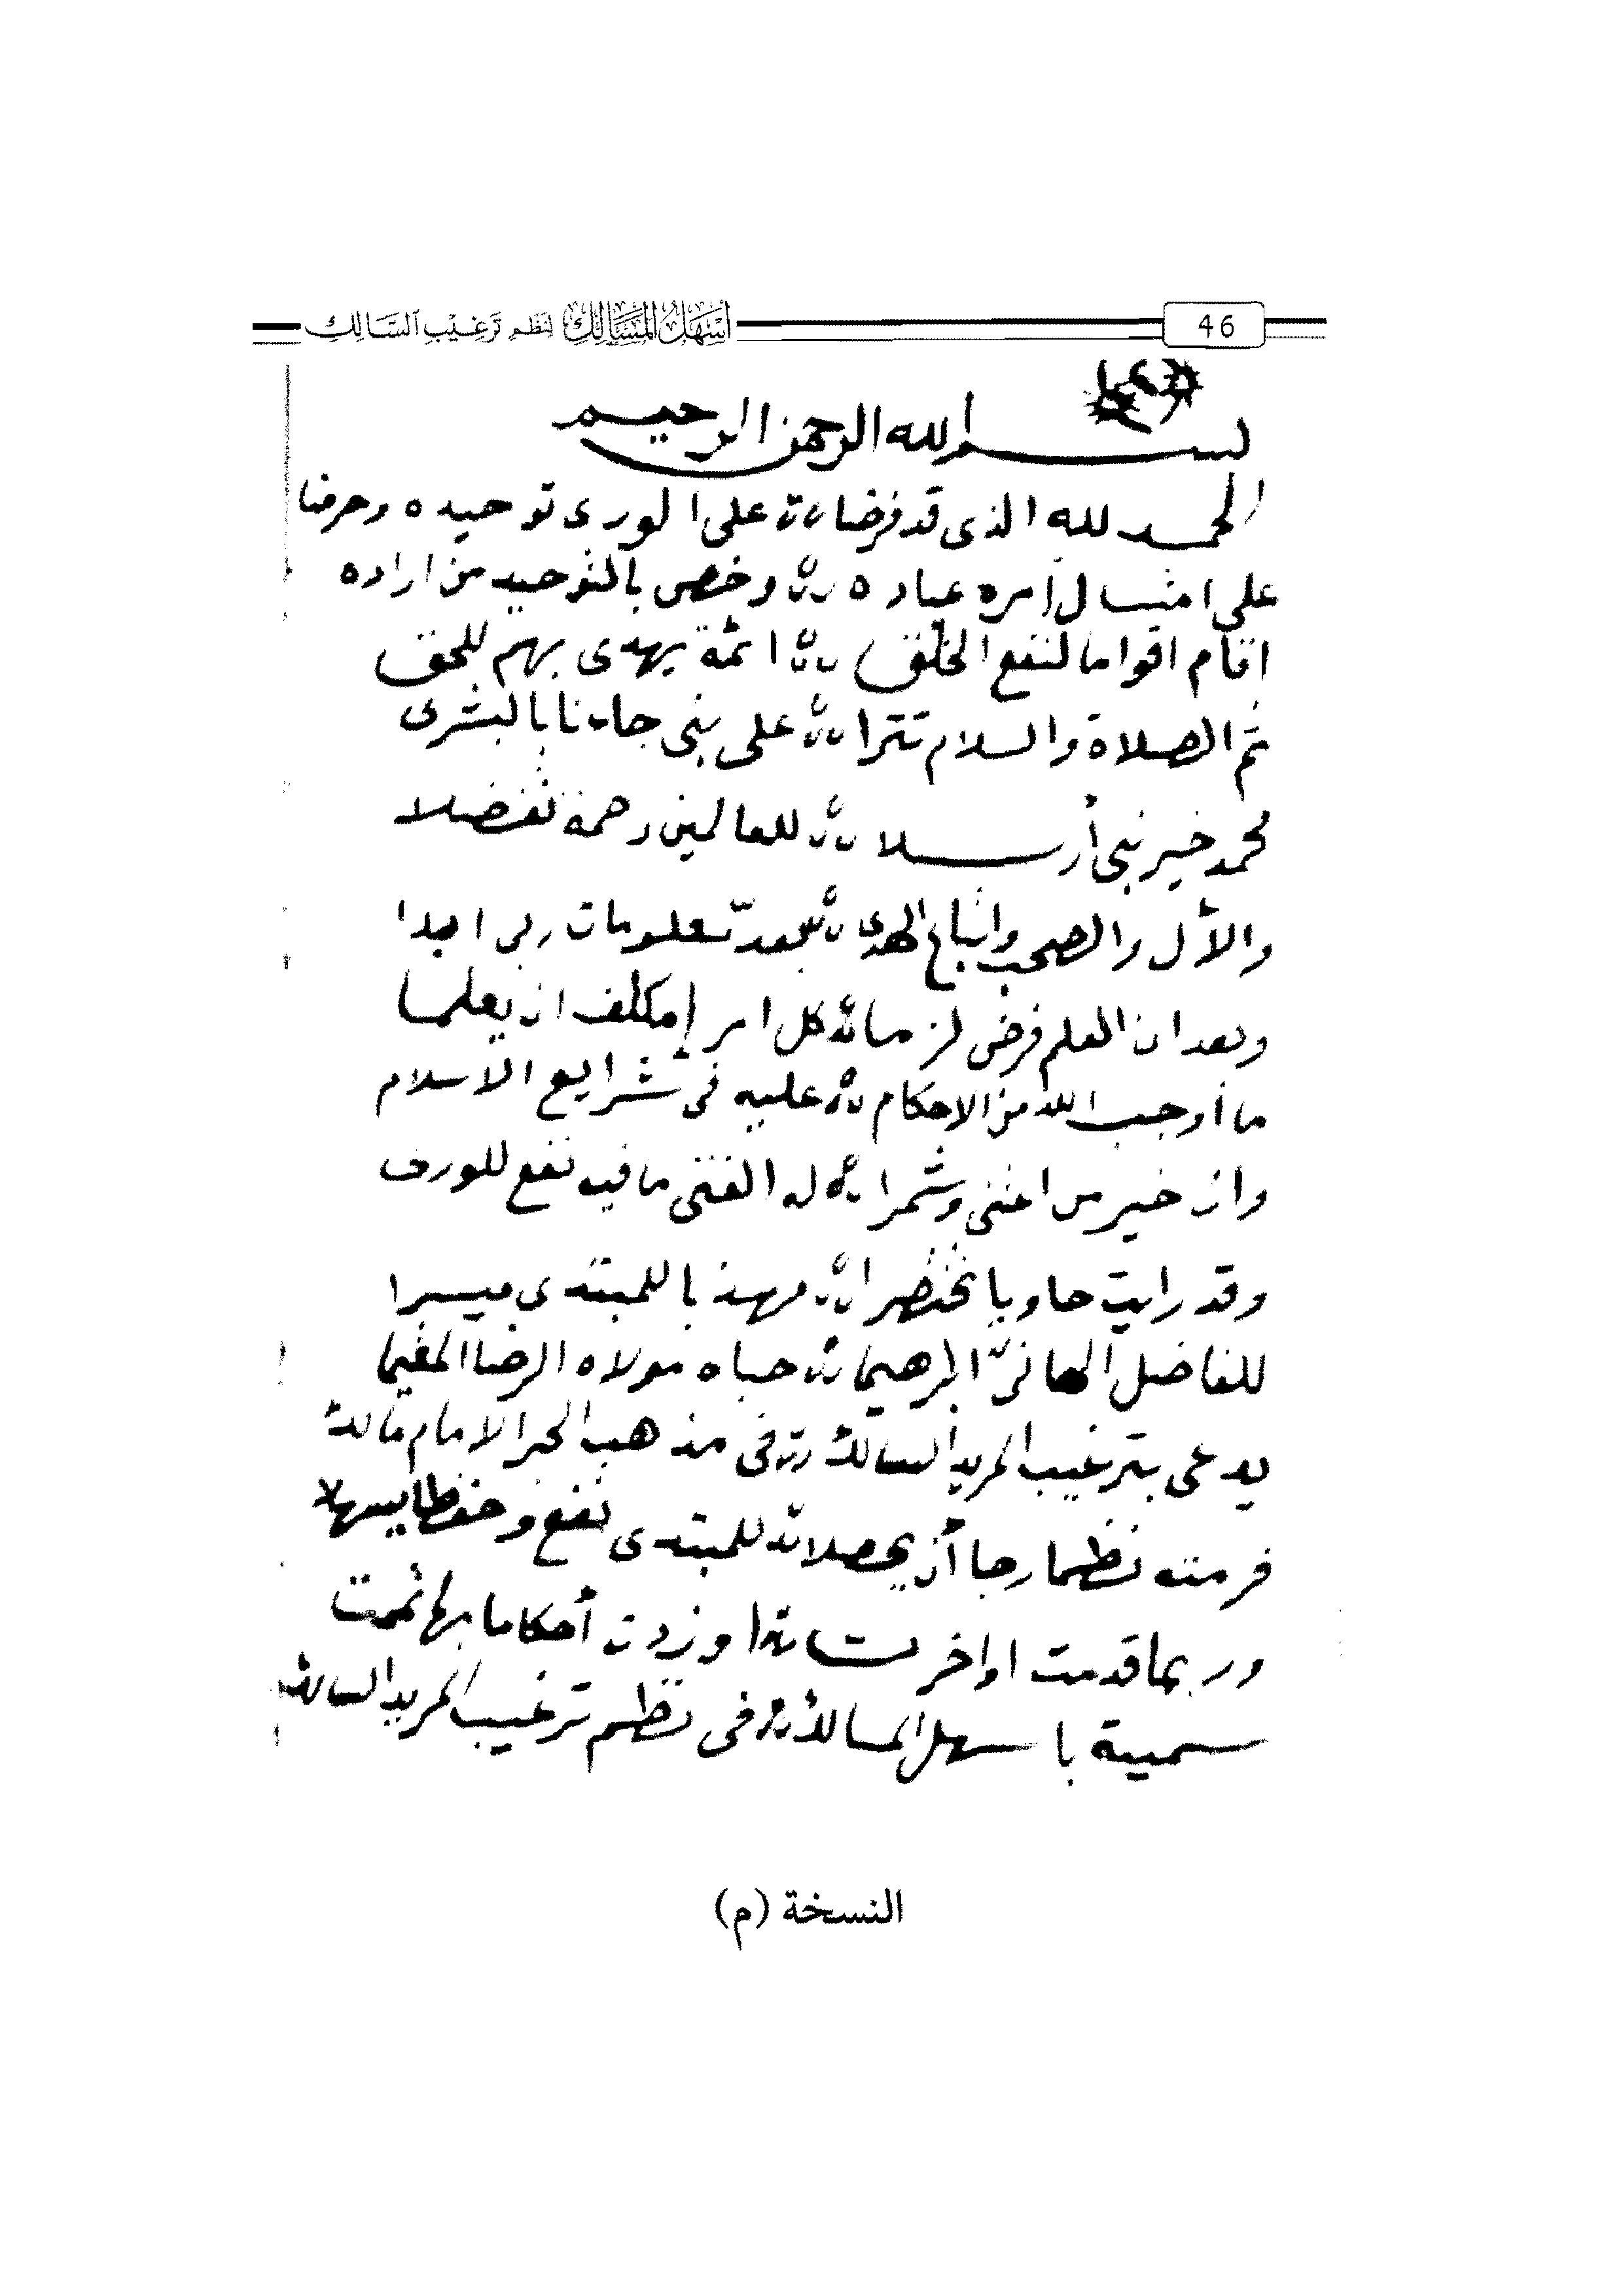 46
أَسْهَلُ المَسَالِكِ لِنَظْمِ تَرْغِيْبِ السَّالِكِ
بسم الله الرحمن الرحيم
الحمد لله الذى قد فرضا على الورى توحيده وحرضا
على امتسال أمره عباده وخص بالتوحيد من اراده
اقام اقواما لنفع الخلق ائمة يهدى بهم للحق
ثم الصلاة والسلام تترا على نبى جاءنا بالبشرى
محمد خير نبى أرسلا للعالمين رحمة تفضلا
والأل والصحب واتباع الهدى بعد معلومات ربى ابدا
وبعد ان العلم فرض لزما كل امرإ مكلف ان يعلما
ما أوجب الله من الاحكام عليه فى شرايع الاسلام
وان خير من اعتنى وشمرا له الفتى ما فيه نفع للورى
وقد رايت حاويا مختصرا مهذبا للمبتدى ميسرا
للفاضل ابرهيما حباه مولاه الرضا المقيما
يدعى بترغيب المريد السالك فى مذهب الحبر الامام مالك
فرمته نظما رجا أن يحصلا للمبتدى نفع وحفظا يسهلا
وربما قدمت او اخرت وزدت أحكاما بها تممت
سميته باسهل المسالك فى نظم ترغيب المريد السالك
النسخة (م)